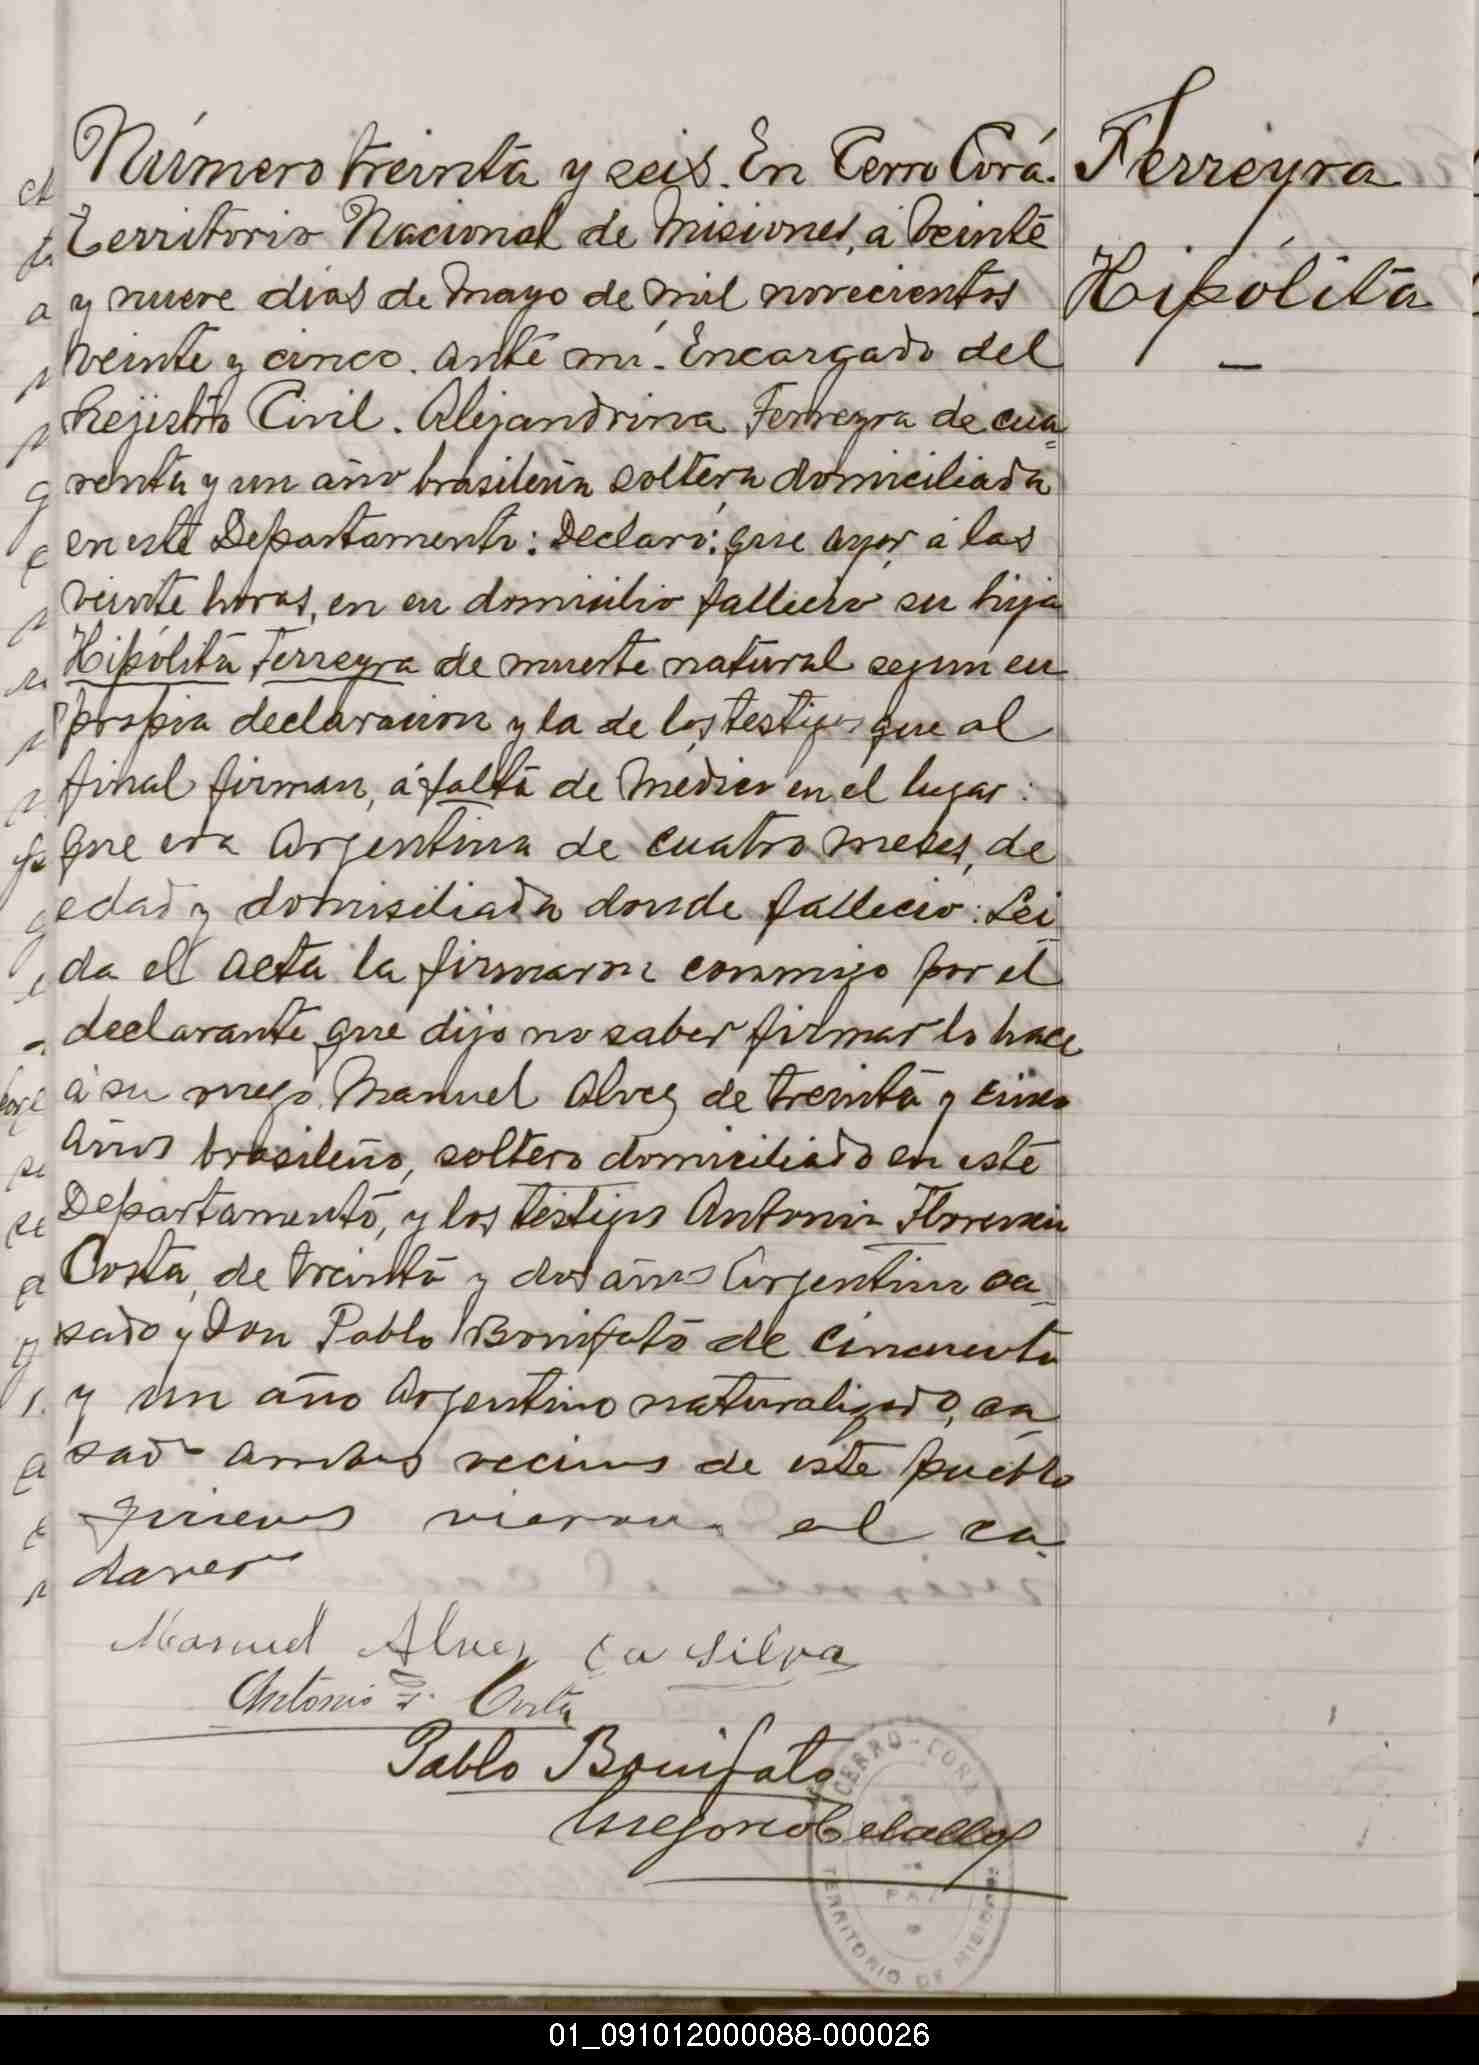 Número treinta y seis. En Cerro Corá.
Territorio Nacional de Misiones, á veinte
y nueve dias de Mayo de mil novecientos
veinte y cinco. ante mí. Encargado del
Rejistro Civil. Alejandrina Ferreyra de cua=
renta y un año brasileña soltera domiciliada
en este Departamento: Declaró: que ayer á las
veinte horas, en su domicilio fallecio su hija
Hipólita Ferreyra de muerte natural segun su
propia declaracion y la de los testigos que al
final firman, á falta de Médico en el lugar:
que era Argentina de cuatro meses, de
edad y domisiliada donde fallecio: Lei
da el acta la firmaron conmigo por el
declarante que dijo no saber firmar lo hace
á su ruego Manuel Alvez de treinta y cinco
años brasileño, soltero domiciliado en este
Departamento, y los testigos Antonio Florencio
Costa, de treinta y dos años Argentino ca
sado y Don Pablo Bonifato de cincuenta
y un año Argentino naturalizado, ca
sado ambos vecinos de este pueblo
quienes vieron el ca
daver
Manuel Alves da Silva
Antonio F. Costa
Pablo Bonifato
Gregorio Celalles
CERRO-CORÁ
TERRITORIO DE MISIONES
Ferreyra
Hipólita
01_091012000088-000026